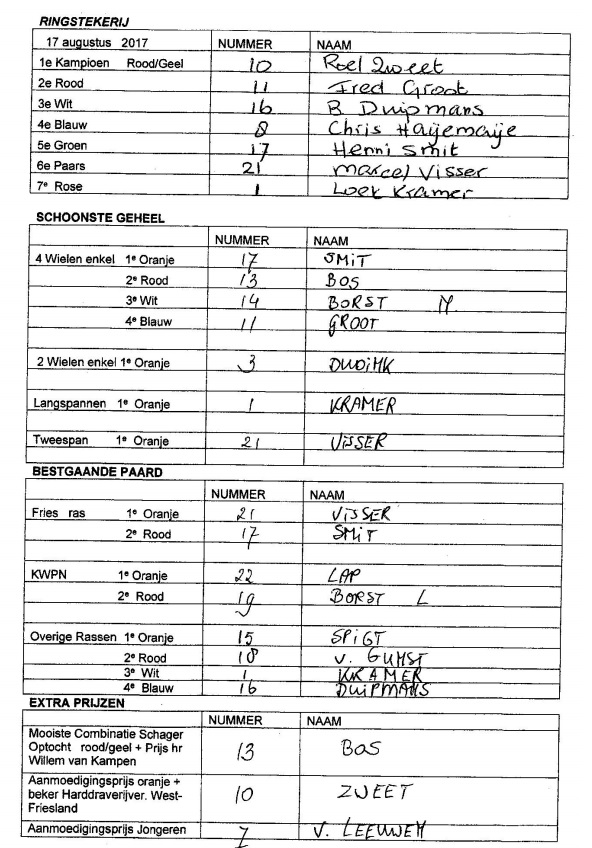 RINGSTEKERIJ
17 augustus 2017 NUMMER NAAM
1e Kampioen Rood/Geel 10 Roel Zweet
2e Rood 11 Fred Groot
3e Wit 16 R Duipmans
4e Blauw 8 Chris
5e Groen 17 Henni Smit
6e Paars 21 Marcel Visser
7e Rose 1 Loek Kramer
SCHOONSTE GEHEEL
NUMMER NAAM
4 Wielen enkel 1e Oranje 17 SMiT
2e Rood 13 BOS
3e Wit 14 BORST N
4e Blauw 11 GROOT
2 Wielen enkel 1e Oranje 3
Langspannen 1e Oranje 1 KRAMER
Tweespan 1e Oranje 21 ViSSER
BESTGAANDE PAARD
NUMMER NAAM
Fries ras 1e Oranje 21 ViSSER
2e Rood 17 SMiT
KWPN 1e Oranje 22 LAP
2e Rood 19 BORST L
Overige Rassen 1e Oranje 15 SPiGT
2e Rood 18 v. GUMST
3e Wit 1 KRAMER
4e Blauw 16 DUiPMANS
EXTRA PRIJZEN
NUMMER NAAM
Mooiste Combinatie Schager
Optocht rood/geel + Prijs hr 13 BOS
Willem van Kampen
Aanmoedigingsprijs oranje +
beker Harddraverijver. West- 10 ZWEET
Friesland
Aanmoedigingsprijs Jongeren 7 V. LEEUWEN